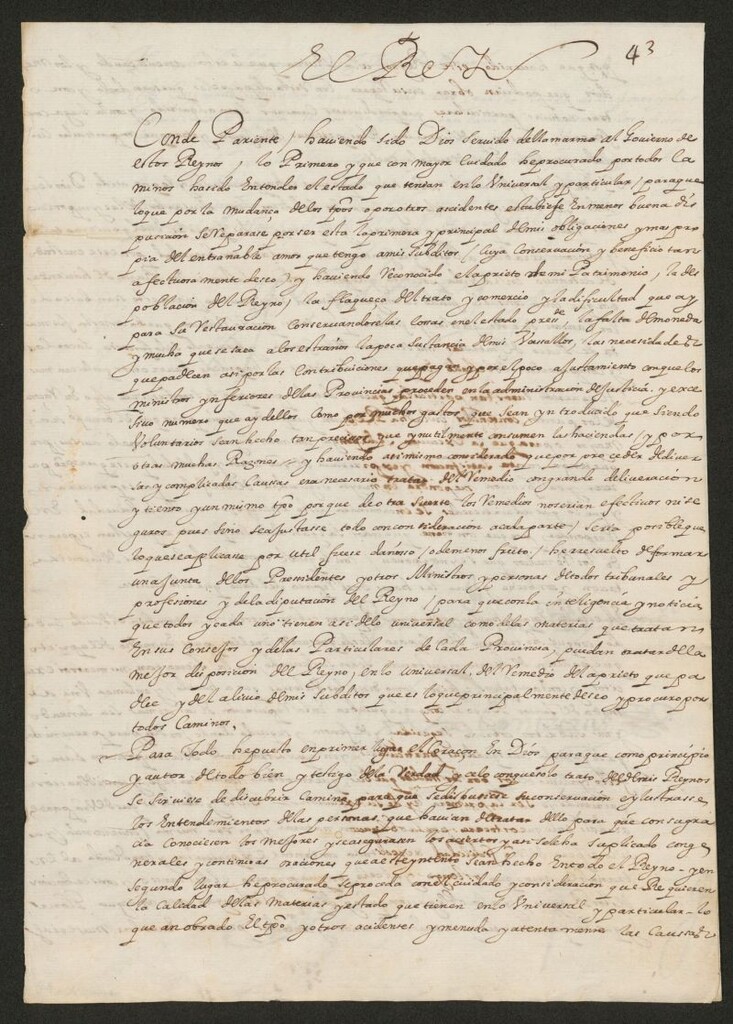 43
El Rey
Conde Pariente / haviendo sido Dios servido dellamarme al Govierno de
estos Reynos / lo Primero y que con mayor Cuidado heprocurado portodos ca
minos hasido Entender el estado que tenian enlo Universal y particular / paraque
loque por la mudança delos tpos oporotros accidentes estubiese En menos buena dis
pusicion se Reparase por ser esta la primera y principal demis obligaciones y mas pro
pia del entrañable amor que tengo amis subditos / Cuya Conservacion y beneficio tan
afectuosamente deseo / y haviendo reconocido el aprieto de mi Patrimonio, la des
poblacion del Reyno, la flaqueça del trato y comercio y la dificultad que ay
para su restauracion Conservandose las cossas enel estado presente la falta de moneda
y mucha que se saca a los estraños la poca sustancia de mis Vassallos, las necesidades
que padeçen asi por las Contribuiciones que pagan y por el poco ajustamiento conque los
ministros ynferiores de las Provincias proceden en la administracion de Justicia. y exce
sivo numero que ay dellos Como por muchos gastos que sean yntroducido que siendo
Voluntarios sean hecho tan precisos que ynutilmente consumen las haciendas / y por
otras muchas Razones y haviendo asimismo considerado que por proceder de diver
sas y complicadas Caussas era necesario tratar del Remedio con grande deliveracion
y tiento y un mismo tpo porque de otra suerte los Remedios no serian efectivos ni se
guros pues sino se ajustasse todo con consideracion a cada parte / seria posible que
loque se aplicasse por util fuese dañoso / o de menos fruto / he resuelto de formar
una Junta de los Presidentes y otros Ministros y personas de todos tribunales y
profesiones y de la diputacion del Reyno / para que con la inteligencia y noticia
que todos y cada uno tienen asi de lo universal como de las materias que tratan
En sus Consejos y de las Particulares de Cada Provincia, puedan tratar de la
mejor disposicion del Reyno, en lo universal, del Remedio del aprieto que pa
deçe y del alivio de mis subditos que es lo que principalmente deseo y procuro por
todos Caminos.
Para Todo he puesto en primer lugar el Coraçon En Dios para que como principio
y autor de todo bien y testigo de la Verdad y celo con que solo trato del de mis Reynos
se sirviese de discubrir Camino para que se dispusiese su conservacion y ylustrasse
los Entendimientos de las personas que havian de tratar dello para que con su gra
cia Conociesen los Mejores y se asegurasen los aciertos y asi se lo ha suplicado con ge
nerales y continuas oraciones que a este yntento sean hecho En todo el Reyno y en
segundo lugar he procurado se proceda con el cuidado y consideracion que Requieren
la Calidad de las Materias y estado que tienen en lo Universal y particular lo
que an obrado El tpo y otros acidentes y menuda y atentamente las Caussas de